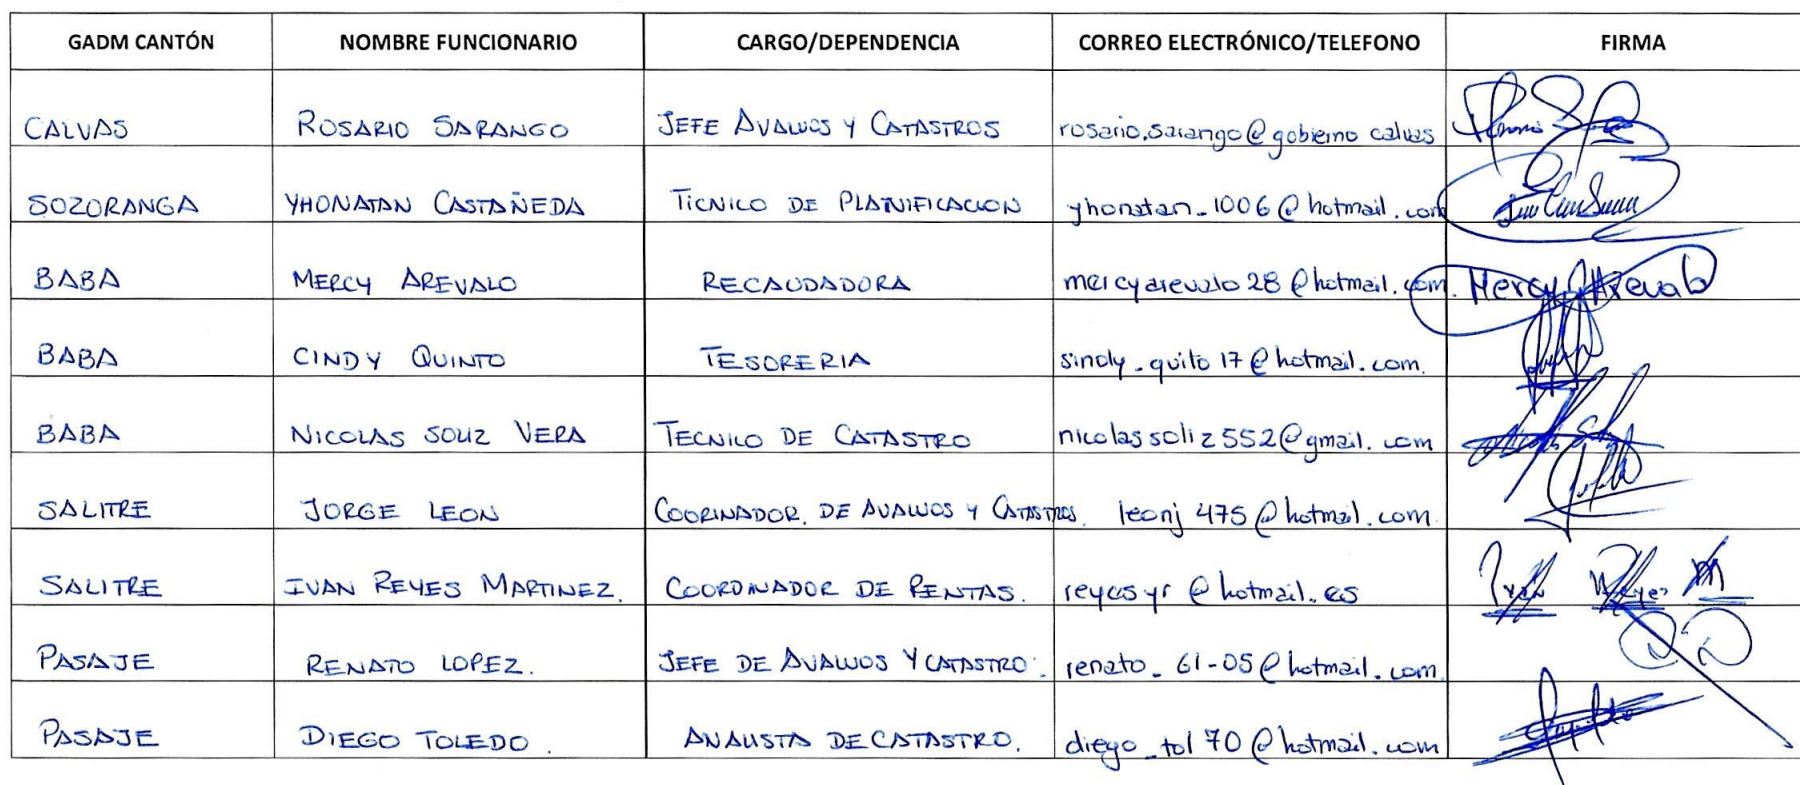 GADM CANTÓN NOMBRE FUNCIONARIO CARGO/DEPENDENCIA CORREO ELECTRÓNICO/TELEFONO FIRMA
CALVAS ROSARIO SARANGO JEFE AVALUOS Y CATASTROS rosario.sarango@gobierno calvas
SOZORANGA YHONATAN CASTAÑEDA TICNICO DE PLANIFICACION yhonatan_1006@hotmail.com
BABA MERCY AREVALO RECAUDADORA mercyarevalo28@hotmail.com. Mercy Arevalo
BABA CINDY QUINTO TESORERIA sindy_quito17@hotmail.com.
BABA NICOLAS SOLIZ VERA TECNICO DE CATASTRO nicolassoliz552@gmail.com
SALITRE JORGE LEON COORINADOR. DE AVALUOS Y CATASTROS. leonj475@hotmail.com.
SALITRE IVAN REYES MARTINEZ. COORDINADOR DE RENTAS. reyesyr@hotmail.es Ivan Reyes M
PASAJE RENATO LOPEZ. JEFE DE AVALUOS Y CATASTRO. renato_61-05@hotmail.com.
PASAJE DIEGO TOLEDO. ANALISTA DE CATASTRO. diego_tol70@hotmail.com